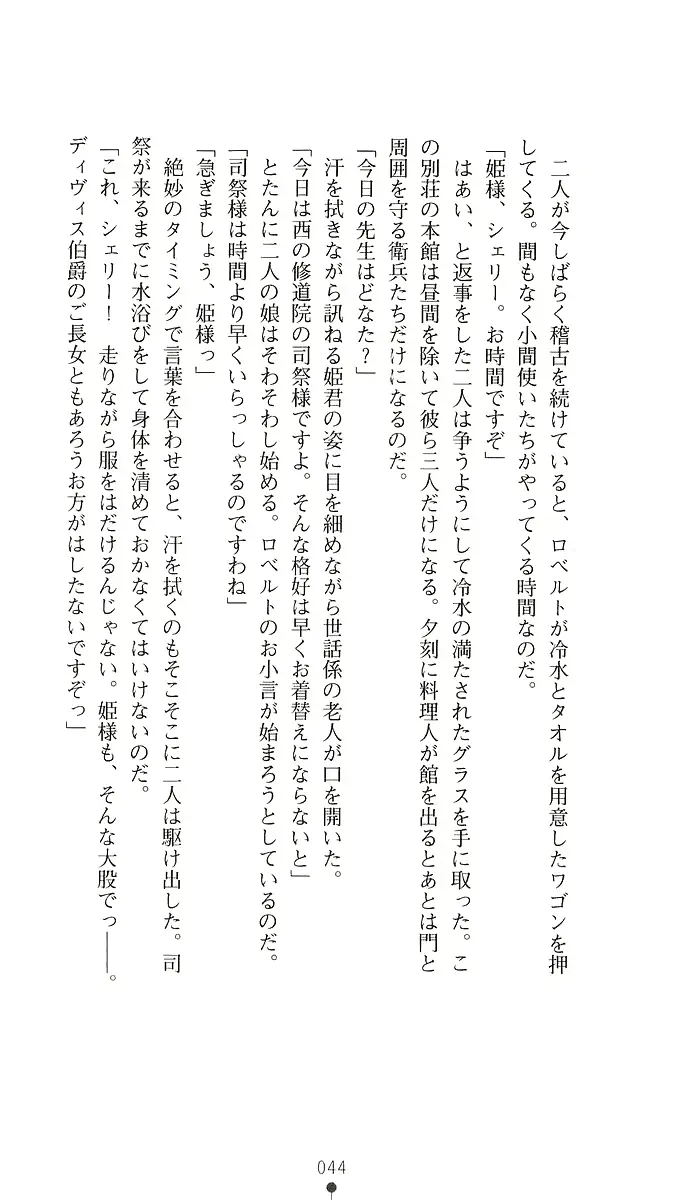 二人が今しばらく稽古を続けていると、ロベルトが冷水とタオルを用意したワゴンを押
してくる。間もなく小間使いたちがやってくる時間なのだ。
「姫様、シェリー。お時間ですぞ」
　はあい、と返事をした二人は争うようにして冷水の満たされたグラスを手に取った。こ
の別荘の本館は昼間を除いて彼ら三人だけになる。夕刻に料理人が館を出るとあとは門と
周囲を守る衛兵たちだけになるのだ。
「今日の先生はどなた？」
　汗を拭きながら訊ねる姫君の姿に目を細めながら世話係の老人が口を開いた。
「今日は西の修道院の司祭様ですよ。そんな格好は早くお着替えにならないと」
　とたんに二人の娘はそわそわし始める。ロベルトのお小言が始まろうとしているのだ。
「司祭様は時間より早くいらっしゃるのですわね」
「急ぎましょう、姫様っ」
　絶妙のタイミングで言葉を合わせると、汗を拭くのもそこそこに二人は駆け出した。司
祭が来るまでに水浴びをして身体を清めておかなくてはいけないのだ。
「これ、シェリー！　走りながら服をはだけるんじゃない。姫様も、そんな大股でっ――。
ディヴィス伯爵のご長女ともあろうお方がはしたないですぞっ」
044